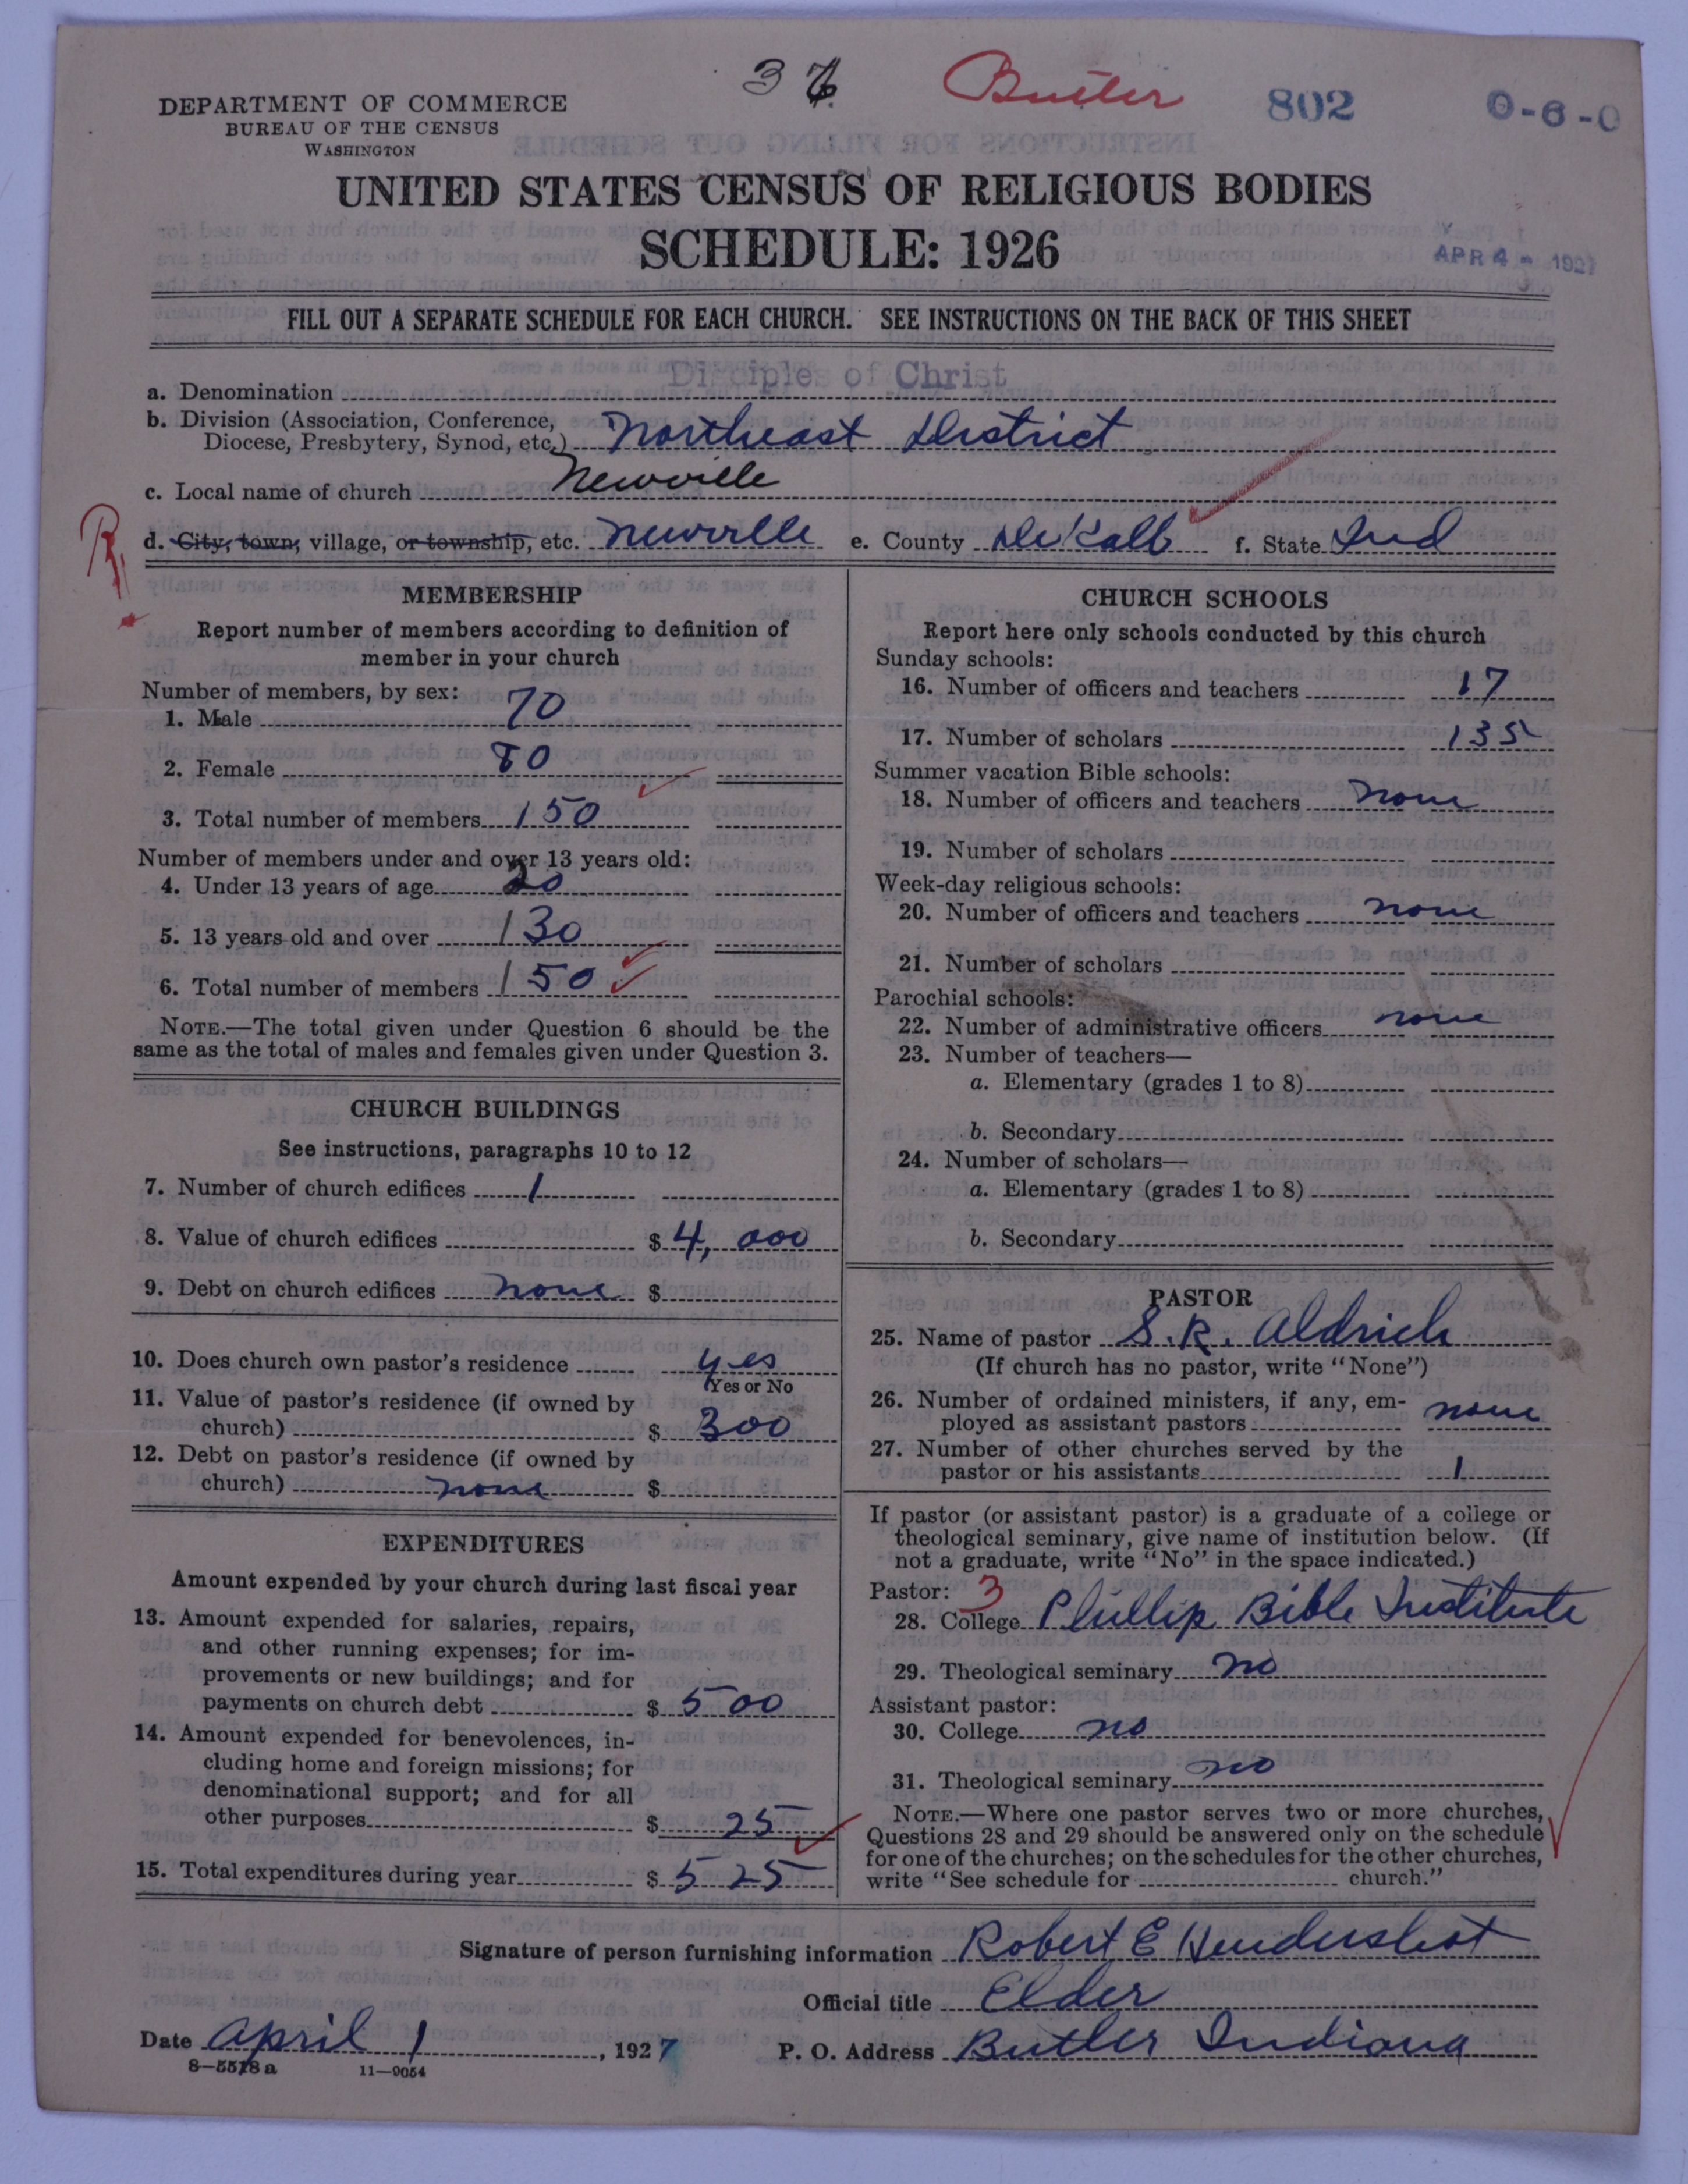 37 Butler 802 0-6-0
DEPARTMENT OF COMMERCE
BUREAU OF THE CENSUS
WASHINGTON
UNITED STATES CENSUS OF RELIGIOUS BODIES
SCHEDULE: 1926
APR 4 - 1927
FILL OUT A SEPARATE SCHEDULE FOR EACH CHURCH. SEE INSTRUCTIONS ON THE BACK OF THIS SHEET
a. Denomination Disciples of Christ
b. Division (Association, Conference,
Diocese, Presbytery, Synod, etc.) Northeast District
c. Local name of church Newville
d. City, town, village, or township, etc. Newville e. County DeKalb f. State Ind
R
MEMBERSHIP
Report number of members according to definition of
member in your church
Number of members, by sex:
1. Male 70
2. Female 80
3. Total number of members 150
Number of members under and over 13 years old:
4. Under 13 years of age 20
5. 13 years old and over 130
6. Total number of members 150
NOTE.—The total given under Question 6 should be the
same as the total of males and females given under Question 3.
CHURCH BUILDINGS
See instructions, paragraphs 10 to 12
7. Number of church edifices 1
8. Value of church edifices $ 4,000
9. Debt on church edifices none $
10. Does church own pastor's residence yes
Yes or No
11. Value of pastor's residence (if owned by
church) $ 300
12. Debt on pastor's residence (if owned by
church) none $
EXPENDITURES
Amount expended by your church during last fiscal year
13. Amount expended for salaries, repairs,
and other running expenses; for im-
provements or new buildings; and for
payments on church debt $ 500
14. Amount expended for benevolences, in-
cluding home and foreign missions; for
denominational support; and for all
other purposes $ 25
15. Total expenditures during year $ 525
CHURCH SCHOOLS
Report here only schools conducted by this church
Sunday schools:
16. Number of officers and teachers 17
17. Number of scholars 135
Summer vacation Bible schools:
18. Number of officers and teachers none
19. Number of scholars
Week-day religious schools:
20. Number of officers and teachers none
21. Number of scholars
Parochial schools:
22. Number of administrative officers none
23. Number of teachers—
a. Elementary (grades 1 to 8)
b. Secondary
24. Number of scholars—
a. Elementary (grades 1 to 8)
b. Secondary
PASTOR
25. Name of pastor S. R. Aldrich
(If church has no pastor, write "None")
26. Number of ordained ministers, if any, em-
ployed as assistant pastors none
27. Number of other churches served by the
pastor or his assistants 1
If pastor (or assistant pastor) is a graduate of a college or
theological seminary, give name of institution below. (If
not a graduate, write "No" in the space indicated.)
Pastor: 3
28. College Phillip Bible Institute
29. Theological seminary no
Assistant pastor:
30. College no
31. Theological seminary no
NOTE.—Where one pastor serves two or more churches,
Questions 28 and 29 should be answered only on the schedule
for one of the churches; on the schedules for the other churches,
write "See schedule for church."
Signature of person furnishing information Robert E Hendershot
Official title Elder
Date April 1, 1927 P. O. Address Butler Indiana
8—5518 a 11—9054